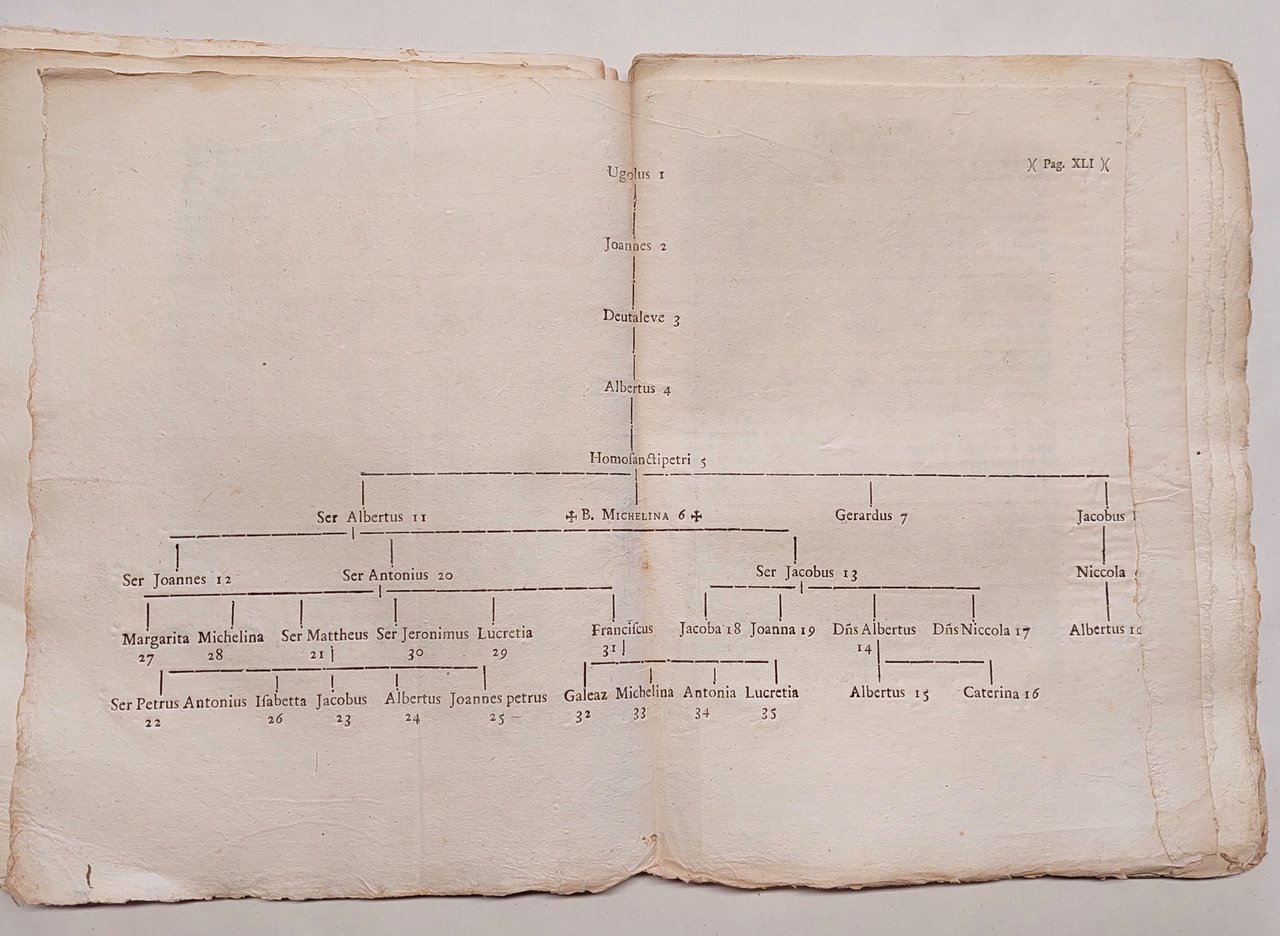 )( Pag. XLI )(
Ugolus 1
Joannes 2
Deutaleve 3
Albertus 4
Homoſanctipetri 5
Ser Albertus 11 ✠ B. MICHELINA 6 ✠ Gerardus 7 Jacobus
Ser Joannes 12 Ser Antonius 20 Ser Jacobus 13 Niccola
Margarita Michelina Ser Mattheus Ser Jeronimus Lucretia Franciſcus Jacoba 18 Joanna 19 Dn̄s Albertus Dn̄s Niccola 17 Albertus
27 28 21 30 29 31 14
Ser Petrus Antonius Iſabetta Jacobus Albertus Joannes petrus Galeaz Michelina Antonia Lucretia Albertus 15 Caterina 16
22 26 23 24 25 32 33 34 35